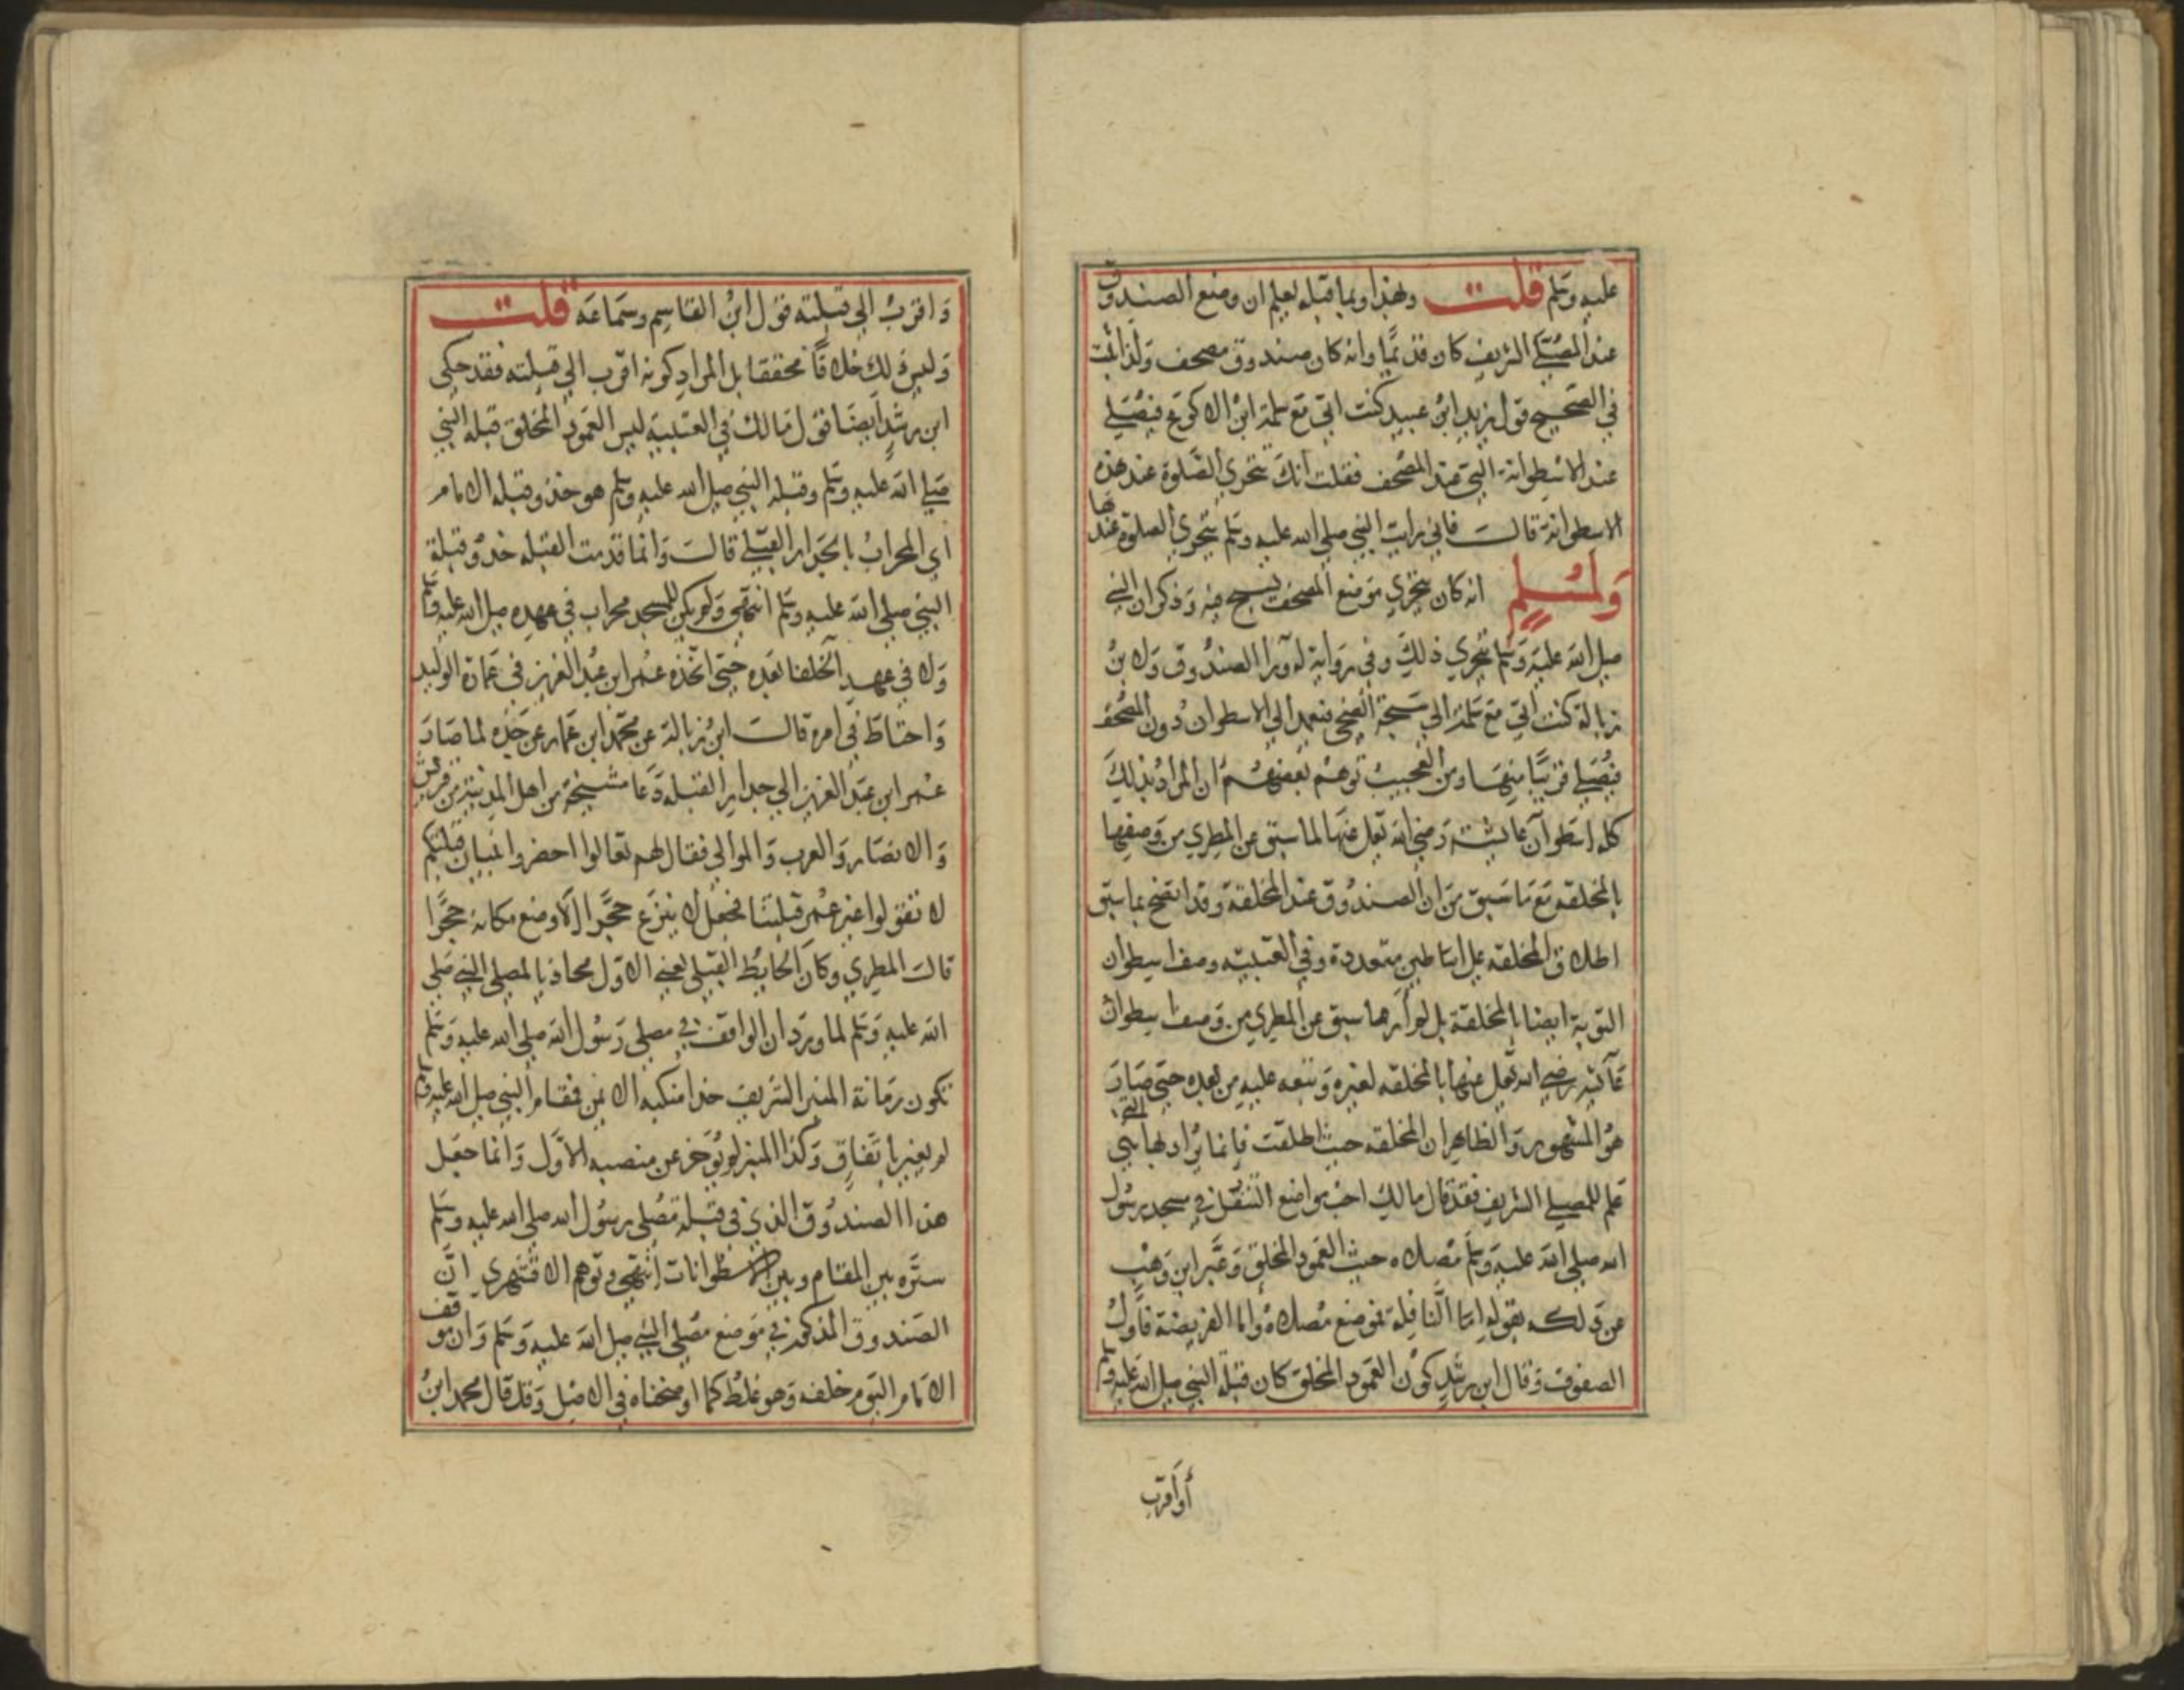 عليه وسلم قلت وبهذا وبما قبله يعلم ان وضع الصندوق
عند المصلى الشريف كان قديما وانه كان صندوق مصحف ولذا اثبت
في الصحيح قول يزيد ابن عبيد كنت اتي مع سلمة ابن الاكوع فيصلي
عند الاسطوانة التي عند المصحف فقلت انك تتحري الصلوة عند هذه
الاسطوانة قالت فاني رايت النبي صلى الله عليه وسلم يتحري الصلوة عندها
ولمسلم انه كان يتحري موضع المصحف يسبح فيه وذكر ان النبي
صلى الله عليه وسلم يتحري ذلك وفي رواية له ورا الصندوق ولابن
زبالة كنت اتي مع سلمة الي سبحة الضحى فيعمد الي الاسطوان دون المصحف
فيصلي قريبا منها ومن العجيب توهم بعضهم ان المراد بذلك
كله اسطوان عايشة رضي الله تعالى عنها لما سبق عن المطري من وصفها
بالمخلقة مع ما سبق من ان الصندوق عند المخلقة وقد اتضح بما سبق
اطلاق المخلقه على اساطين متعددة وفي العتبية وصف اسطوان
التوبة ايضا بالمخلقة بل لم ار هما سبق عن المطري من وصف اسطوان
عائشه رضي الله تعالى عنها بالمخلقه لغيره وتبعه عليه من بعده حتى صار
هو المشهور والظاهر ان المخلقه حيث اطلقت فانما يراد بها التي هي
علم للمصلي الشريف فقد قال مالك احب مواضع التنفل في مسجد رسول
الله صلى الله عليه وسلم مصلاه حيث العمود المخلق وعبر ابن وهب
عن ذلك بقوله اما النافلة فموضع مصلاه واما الفريضة فاول
الصفوف وقال ابن رشد كون العمود المخلق كان قبلة النبي صلى الله عليه وسلم
أو أقرب
واقرب الي قبلته قول ابن القاسم وسماعه قلت
وليس ذلك خلافا محققا بل المراد كونه اقرب الي قبلته فقد حكى
ابن رشد ايضا قول مالك في العتبية ليس العمود المخلق قبلة النبي
صلى الله عليه وسلم وقبلة النبي صلى الله عليه وسلم هو حذو قبلة الامام
اي المحراب بالجدار القبلي قالت وانما قدمت القبله حذو قبلة
النبي صلى الله عليه وسلم انتهى ولم يكن للمسجد محراب في عهده صلى الله عليه وسلم
ولا في عهد الخلفا بعده حتى اتخذه عمر ابن عبد العزيز في عمارة الوليد
واحتاط في امره قالت ابن زبالة عن محمد ابن عمار عن جده لما صار
عمر ابن عبد العزيز الي جدار القبلة دعا مشيخة من اهل المدينة من قريش
والانصار والعرب والموالي فقال لهم تعالوا احضروا بنيان قبلتكم
لا تقولوا غير عمر قبلتنا فجعل لا ينزع حجرا الا وضع مكانه حجرا
قالت المطري وكان الحايط القبلي يعني الاول محاذيا لمصلى النبي صلى
الله عليه وسلم لما ورد ان الواقف في مصلى رسول الله صلى الله عليه وسلم
تكون رمانة المنبر الشريف حذا منكبه الايمن فمقام النبي صلى الله عليه وسلم
لم يغير باتفاق وكذا المنبر لم يؤخر عن منصبه الاول وانما جعل
هذا الصندوق الذي في قبلة مصلى رسول الله صلى الله عليه وسلم
ستره بين المقام وبين الاسطوانات انتهى وتوهم الاقشهري ان
الصندوق المذكور في موضع مصلى النبي صلى الله عليه وسلم وان موقف
الامام اليوم خلفه وهو غلط كما اوضحناه في الاصل وقد قال محمد ابن